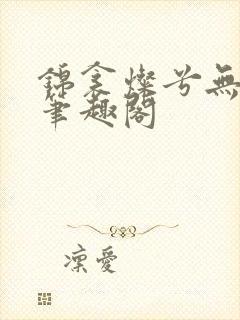 錦衾燦兮無
筆趣閣
凜愛